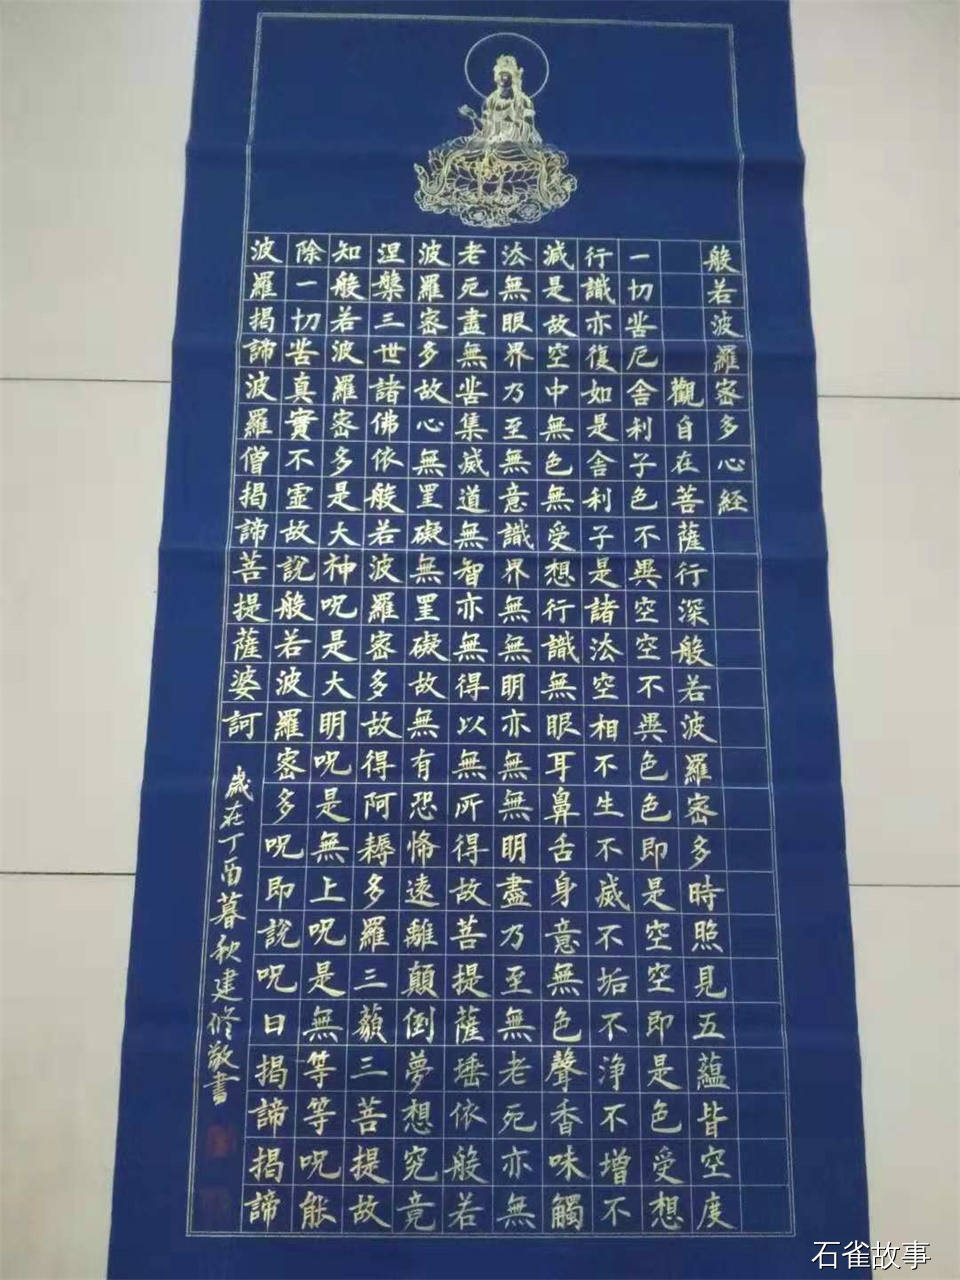 般若波羅密多心經
觀自在菩薩行深般若波羅密多時照見五蘊皆空度
一切苦厄舍利子色不異空空不異色色即是空空即是色受想
行識亦復如是舍利子是諸法空相不生不滅不垢不净不增不
減是故空中無色無受想行識無眼耳鼻舌身意無色聲香味觸
法無眼界乃至無意識界無無明亦無無明盡乃至無老死亦無
老死盡無苦集滅道無智亦無得以無所得故菩提薩埵依般若
波羅密多故心無罣礙無罣礙故無有恐怖遠離顛倒夢想究竟
涅槃三世諸佛依般若波羅密多故得阿耨多羅三藐三菩提故
知般若波羅密多是大神呪是大明呪是無上呪是無等等呪能
除一切苦真實不虛故說般若波羅密多呪即說呪曰揭諦揭諦
波羅揭諦波羅僧揭諦菩提薩婆訶
歲在丁酉暮秋建修敬書
石雀故事